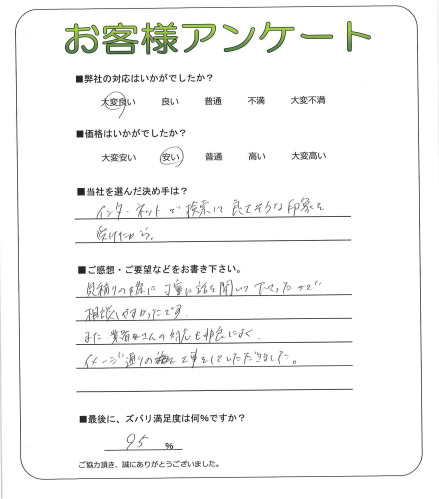 お客様アンケート
■弊社の対応はいかがでしたか?
大変良い 良い 普通 不満 大変不満
■価格はいかがでしたか?
大変安い 安い 普通 高い 大変高い
■当社を選んだ決め手は?
インターネットで検索して良さそうな印象を
受けたから。
■ご感想・ご要望などをお書き下さい。
見積りの際に丁寧に話を聞いて下さったので
相談しやすかったです。
また、業者さんの対応も非常に良く、
イメージ通りの 工事をしていただきました。
■最後に、ズバリ満足度は何%ですか?
95 %
ご協力頂き、誠にありがとうございました。